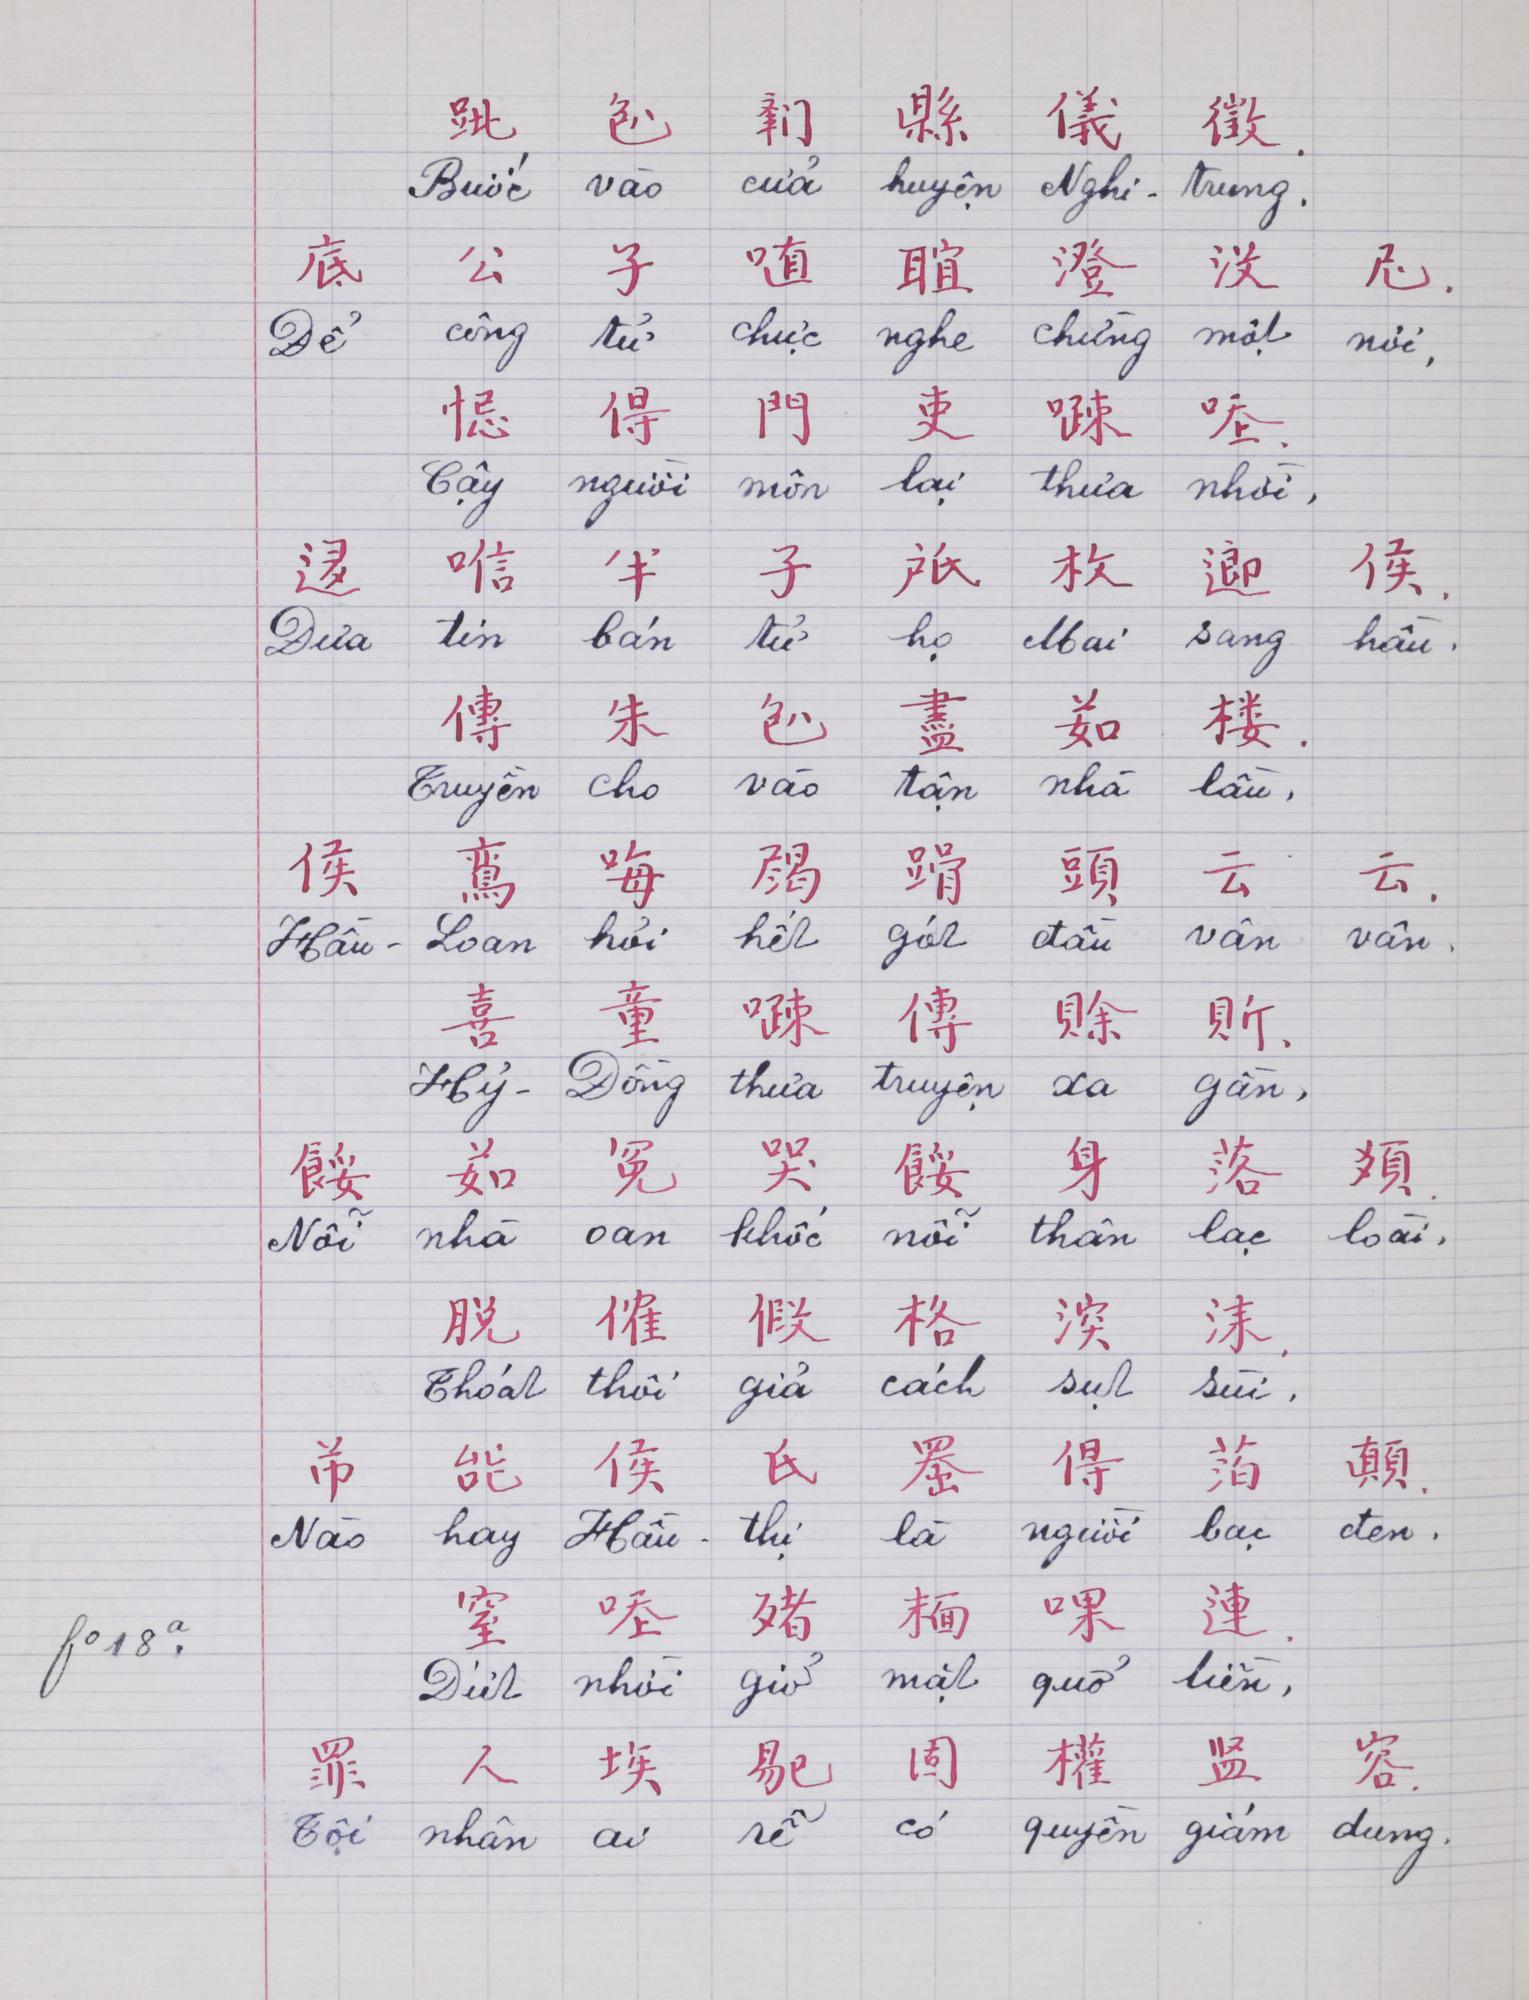 𨀈 𠓨 𨷶 縣 儀 徵.
Bước vào cửa huyện Nghi-trưng.
底 公 子 㨁 𦖑 澄 沒 尼.
Để công tử chực nghe chừng một nơi,
忋 得 門 吏 𠽔 𠳨.
Cậy người môn lại thưa nhời,
迻 㗂 半 子 𢩜 枚 𨖅 侯.
Đưa tin bán tử họ Mai sang hầu.
傳 朱 𠓨 盡 茹 楼.
Truyền cho vào tận nhà lầu,
侯 鸞 𠳨 歇 𨃴 頭 云 云.
Hầu-Loan hỏi hết gót đầu vân vân.
喜 童 𠽔 傳 賒 𧵆.
Hỷ-Đồng thưa truyện xa gần,
餒 茹 冤 哭 餒 身 落 類.
Nỗi nhà oan khốc nỗi thân lạc loài,
脱 催 假 格 湥 洡.
Thoát thôi giả cách sụt sùi,
芇 咍 侯 氏 羅 得 泊 顛.
Nào hay Hầu-thị là người bạc đen.
窒 𠳒 𣦍 𩈘 喂 連.
Dứt nhời giở mặt quở liền,
罪 人 埃 易 固 權 监 容.
Tội nhân ai rễ có quyền giám dung.
fº 18ª.